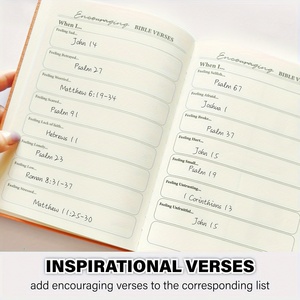 Encouraging
BIBLE VERSES
When I...
Feeling Sad...
John 14
Psalm 27
Feeling Worried...
Matthew 6:19-34
Psalm 91
Feeling Lack of faith...
Hebrews 11
Feeling Lonely...
Psalm 23
Roman 8:31-37
Feeling Stressed...
Matthew 11:25-30
Encouraging
BIBLE VERSES
When I...
Feeling Selfish...
Psalm 67
Feeling Afraid...
Joshua 1
Feeling Broke...
Psalm 37
Feeling Hurt...
John 15
Feeling Small...
Psalm 19
Feeling Untrusting...
1 Corinthians 13
Feeling Unfruitful...
John 15
INSPIRATIONAL VERSES
add encouraging verses to the corresponding list